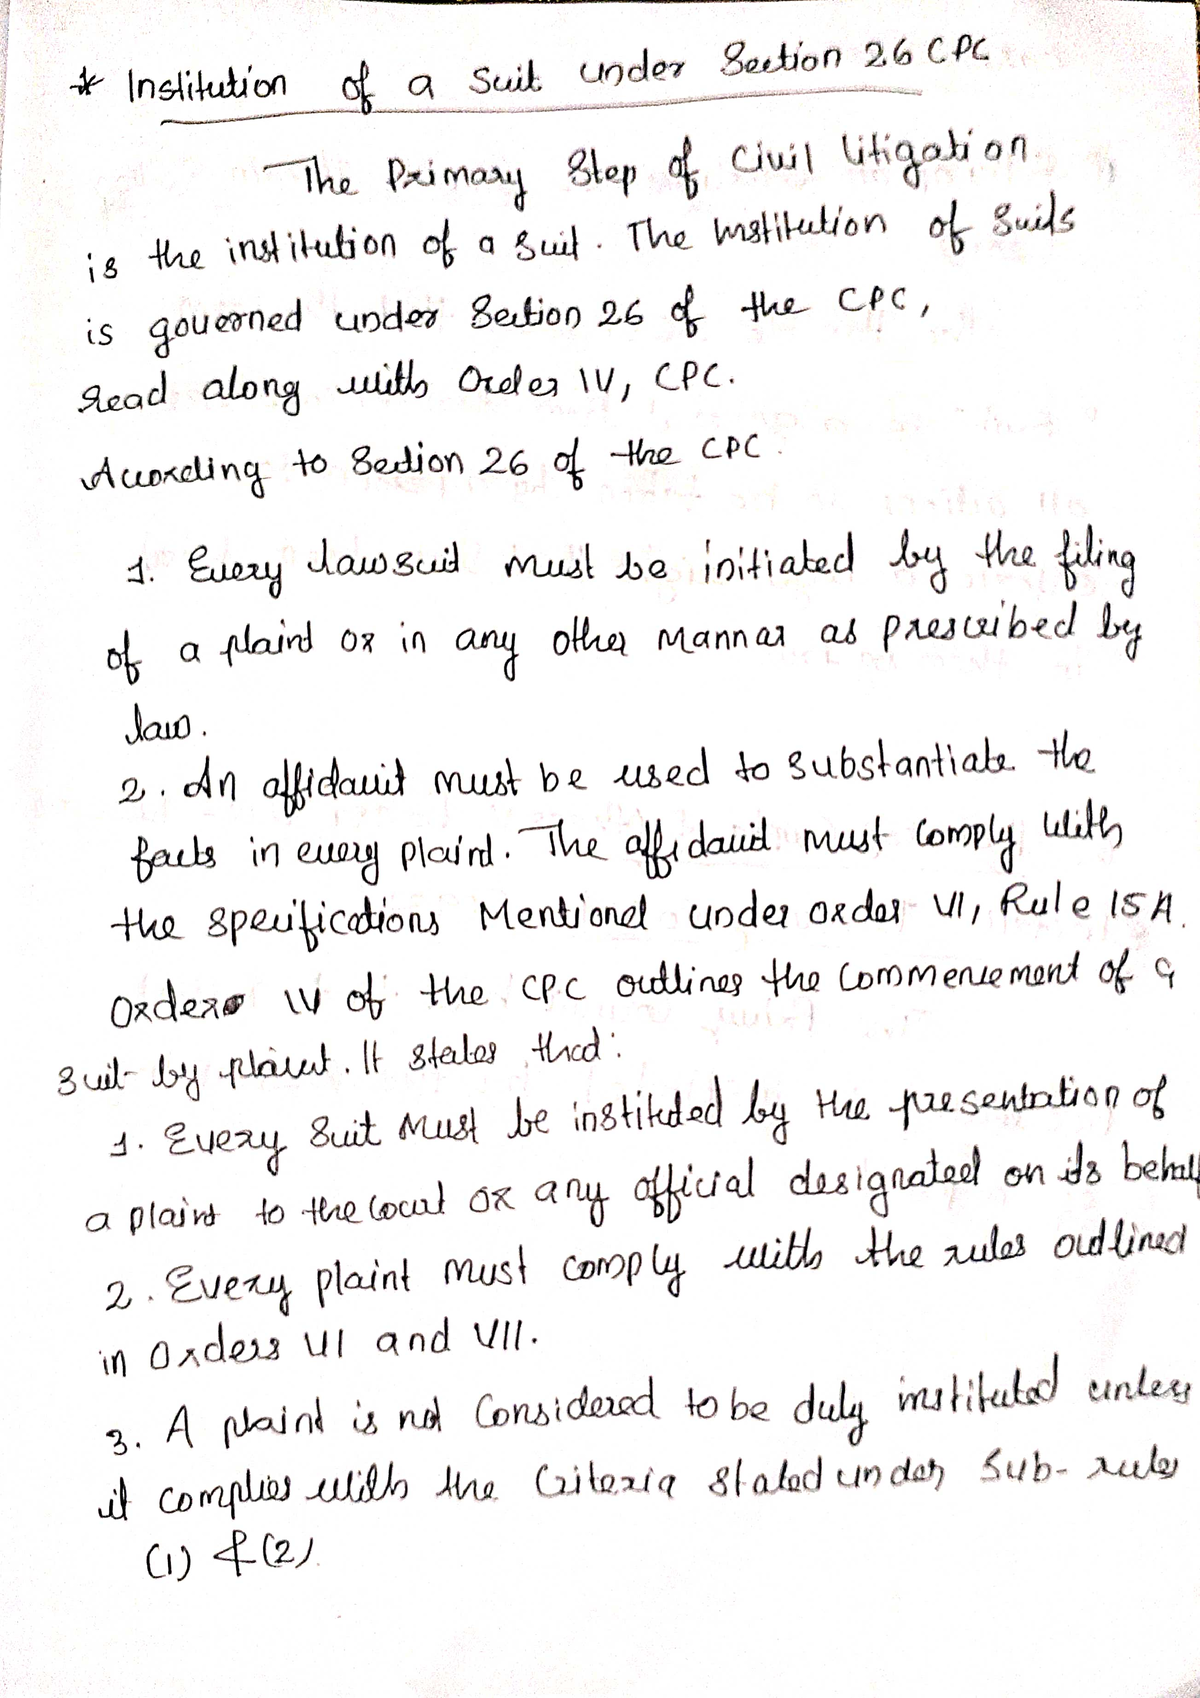 * Institution of a Suit under Section 26 CPC
The Primary Step of Civil litigation
is the institution of a suit. The institution of suits
is governed under Section 26 of the CPC,
Read along with Order IV, CPC.
According to Section 26 of the CPC.
1. Every lawsuit must be initiated by the filing
of a plaint or in any other mannar as prescribed by
law.
2. An affidavit must be used to substantiate the
facts in every plaint. The affidavit must comply with
the specifications Mentioned under order VI, Rule 15A.
Order IV of the CPC outlines the commencement of a
suit by plaint. It states that:
1. Every suit must be instituted by the presentation of
a plaint to the court or any official designated on its behalf
2. Every plaint must comply with the rules outlined
in Orders VI and VII.
3. A plaint is not considered to be duly instituted unless
it complies with the Criteria stated under sub-rules
(1) & (2).